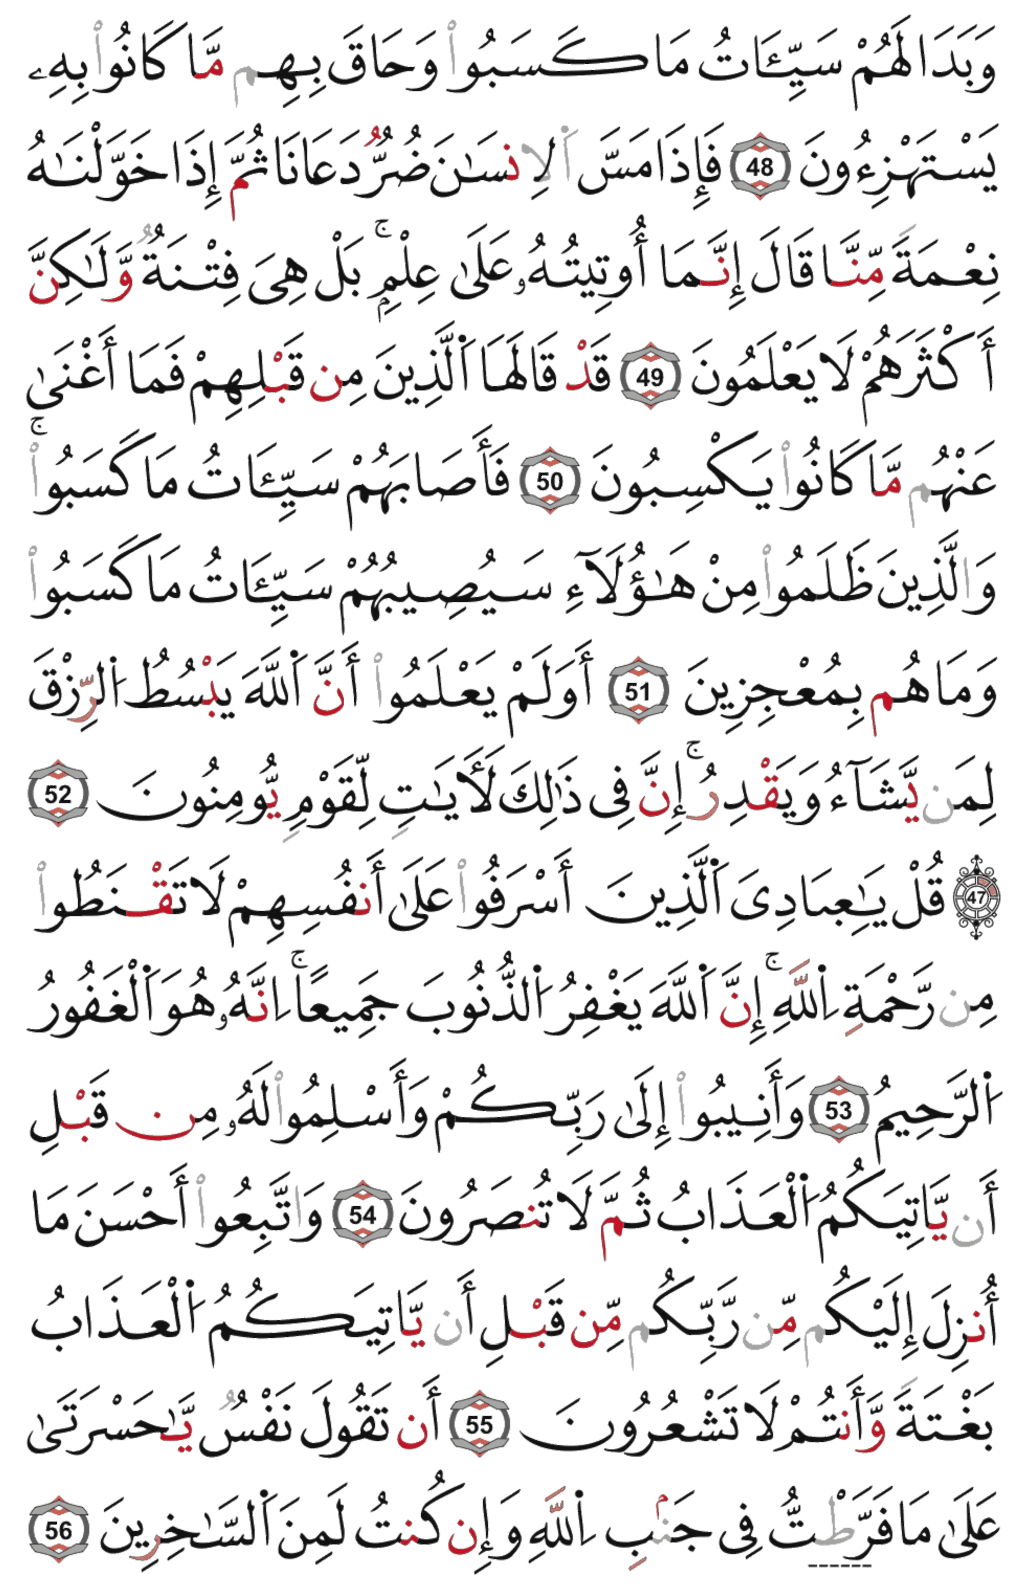 وَبَدَا لَهُمْ سَيِّـَٔاتُ مَا كَسَبُوا۟ وَحَاقَ بِهِم مَّا كَانُوا۟ بِهِۦ
يَسْتَهْزِءُونَ 48 فَإِذَا مَسَّ ٱلِانسَـٰنَ ضُرٌّ دَعَانَا ثُمَّ إِذَا خَوَّلْنَـٰهُ
نِعْمَةً مِّنَّا قَالَ إِنَّمَا أُوتِيتُهُۥ عَلَىٰ عِلْمٍۭ ۚ بَلْ هِىَ فِتْنَةٌ وَّلَـٰكِنَّ
أَكْثَرَهُمْ لَا يَعْلَمُونَ 49 قَدْ قَالَهَا ٱلَّذِينَ مِن قَبْلِهِمْ فَمَا أَغْنَىٰ
عَنْهُم مَّا كَانُوا۟ يَكْسِبُونَ 50 فَأَصَابَهُمْ سَيِّـَٔاتُ مَا كَسَبُوا۟ ۚ
وَالَّذِينَ ظَلَمُوا۟ مِنْ هَـٰؤُلَآءِ سَيُصِيبُهُمْ سَيِّـَٔاتُ مَا كَسَبُوا۟
وَمَا هُم بِمُعْجِزِينَ 51 أَوَلَمْ يَعْلَمُوا۟ أَنَّ ٱللَّهَ يَبْسُطُ ٱلرِّزْقَ
لِمَن يَّشَآءُ وَيَقْدِرُ ۚ إِنَّ فِى ذَٰلِكَ لَأَيَـٰتٍ لِّقَوْمٍ يُّومِنُونَ 52
47 قُلْ يَـٰعِبَادِىَ ٱلَّذِينَ أَسْرَفُوا۟ عَلَىٰ أَنفُسِهِمْ لَا تَقْنَطُوا۟
مِن رَّحْمَةِ ٱللَّهِ ۚ إِنَّ ٱللَّهَ يَغْفِرُ ٱلذُّنُوبَ جَمِيعًا ۚ اِنَّهُۥ هُوَ ٱلْغَفُورُ
ٱلرَّحِيمُ 53 وَأَنِيبُوا۟ إِلَىٰ رَبِّكُمْ وَأَسْلِمُوا۟ لَهُۥ مِن قَبْلِ
أَن يَّاتِيَكُمُ ٱلْعَذَابُ ثُمَّ لَا تُنصَرُونَ 54 وَاتَّبِعُوا۟ أَحْسَنَ مَا
أُنزِلَ إِلَيْكُم مِّن رَّبِّكُم مِّن قَبْلِ أَن يَّاتِيَكُمُ ٱلْعَذَابُ
بَغْتَةً وَّأَنتُمْ لَا تَشْعُرُونَ 55 أَن تَقُولَ نَفْسٌ يَّـٰحَسْرَتَىٰ
عَلَىٰ مَا فَرَّطْتُّ فِى جَنۢبِ ٱللَّهِ وَإِن كُنتُ لَمِنَ ٱلسَّـٰخِرِينَ 56